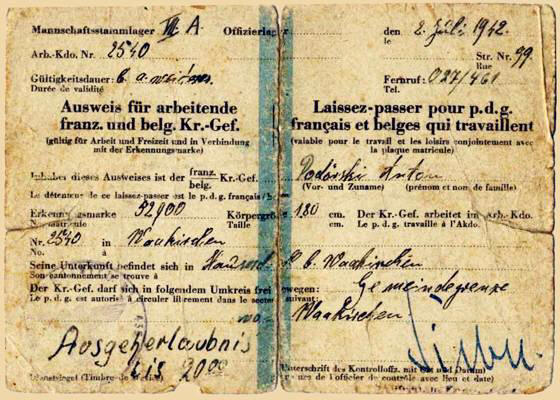 Mannschaftsstammlager VII A Offizierlager den 2. Juli 1942
le
Arb.-Kdo. Nr. 2540 Str. Nr. 99
Rue
Gültigkeitsdauer: Fernruf: 027/461
Durée de validité Tel.
Ausweis für arbeitende Laissez-passer pour p.d.g.
franz. und belg. Kr.-Gef. français et belges qui travaillent
(gültig für Arbeit und Freizeit und in Verbindung (valable pour le travail et les loisirs conjointement avec
mit der Erkennungsmarke) la plaque matricule)
Inhaber dieses Ausweises ist der franz. Kr.-Gef. Anton
belg. (Vor- und Zuname) (prénom et nom de famille)
Le détenteur de ce laissez-passer est le p.d.g. français
Erkennungsmarke 52900 Körpergröße 180 cm. Der Kr.-Gef. arbeitet im Arb.-Kdo.
No. matricule Taille cm. Le p.d.g. travaille à l'Akdo.
Nr. 2540 in Waakirchen
No. à
Seine Unterkunft befindet sich in b. Waakirchen
Son cantonnement se trouve à
Der Kr.-Gef. darf sich in folgendem Umkreis frei bewegen: Gemeindegrenze
Le p.d.g. est autorisé à circuler librement dans le secteur suivant:
von Waakirchen
Ausgeherlaubnis
bis 20 00
Dienstsiegel (Timbre de Unterschrift des Kontrolloffz. mit Ort und Datum)
de l'officier de contrôle avec lieu et date)